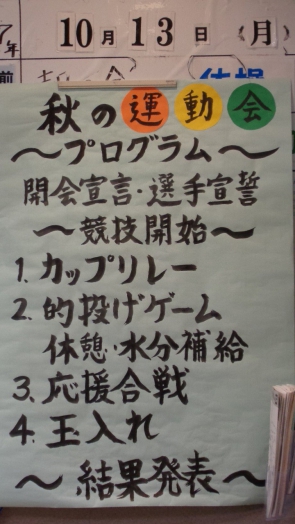 7年 10月13日(月)
前
秋の運動会
～プログラム～
開会宣言・選手宣誓
～競技開始～
1. カップリレー
2. 的投げゲーム
休憩・水分補給
3. 応援合戦
4. 玉入れ
～結果発表～